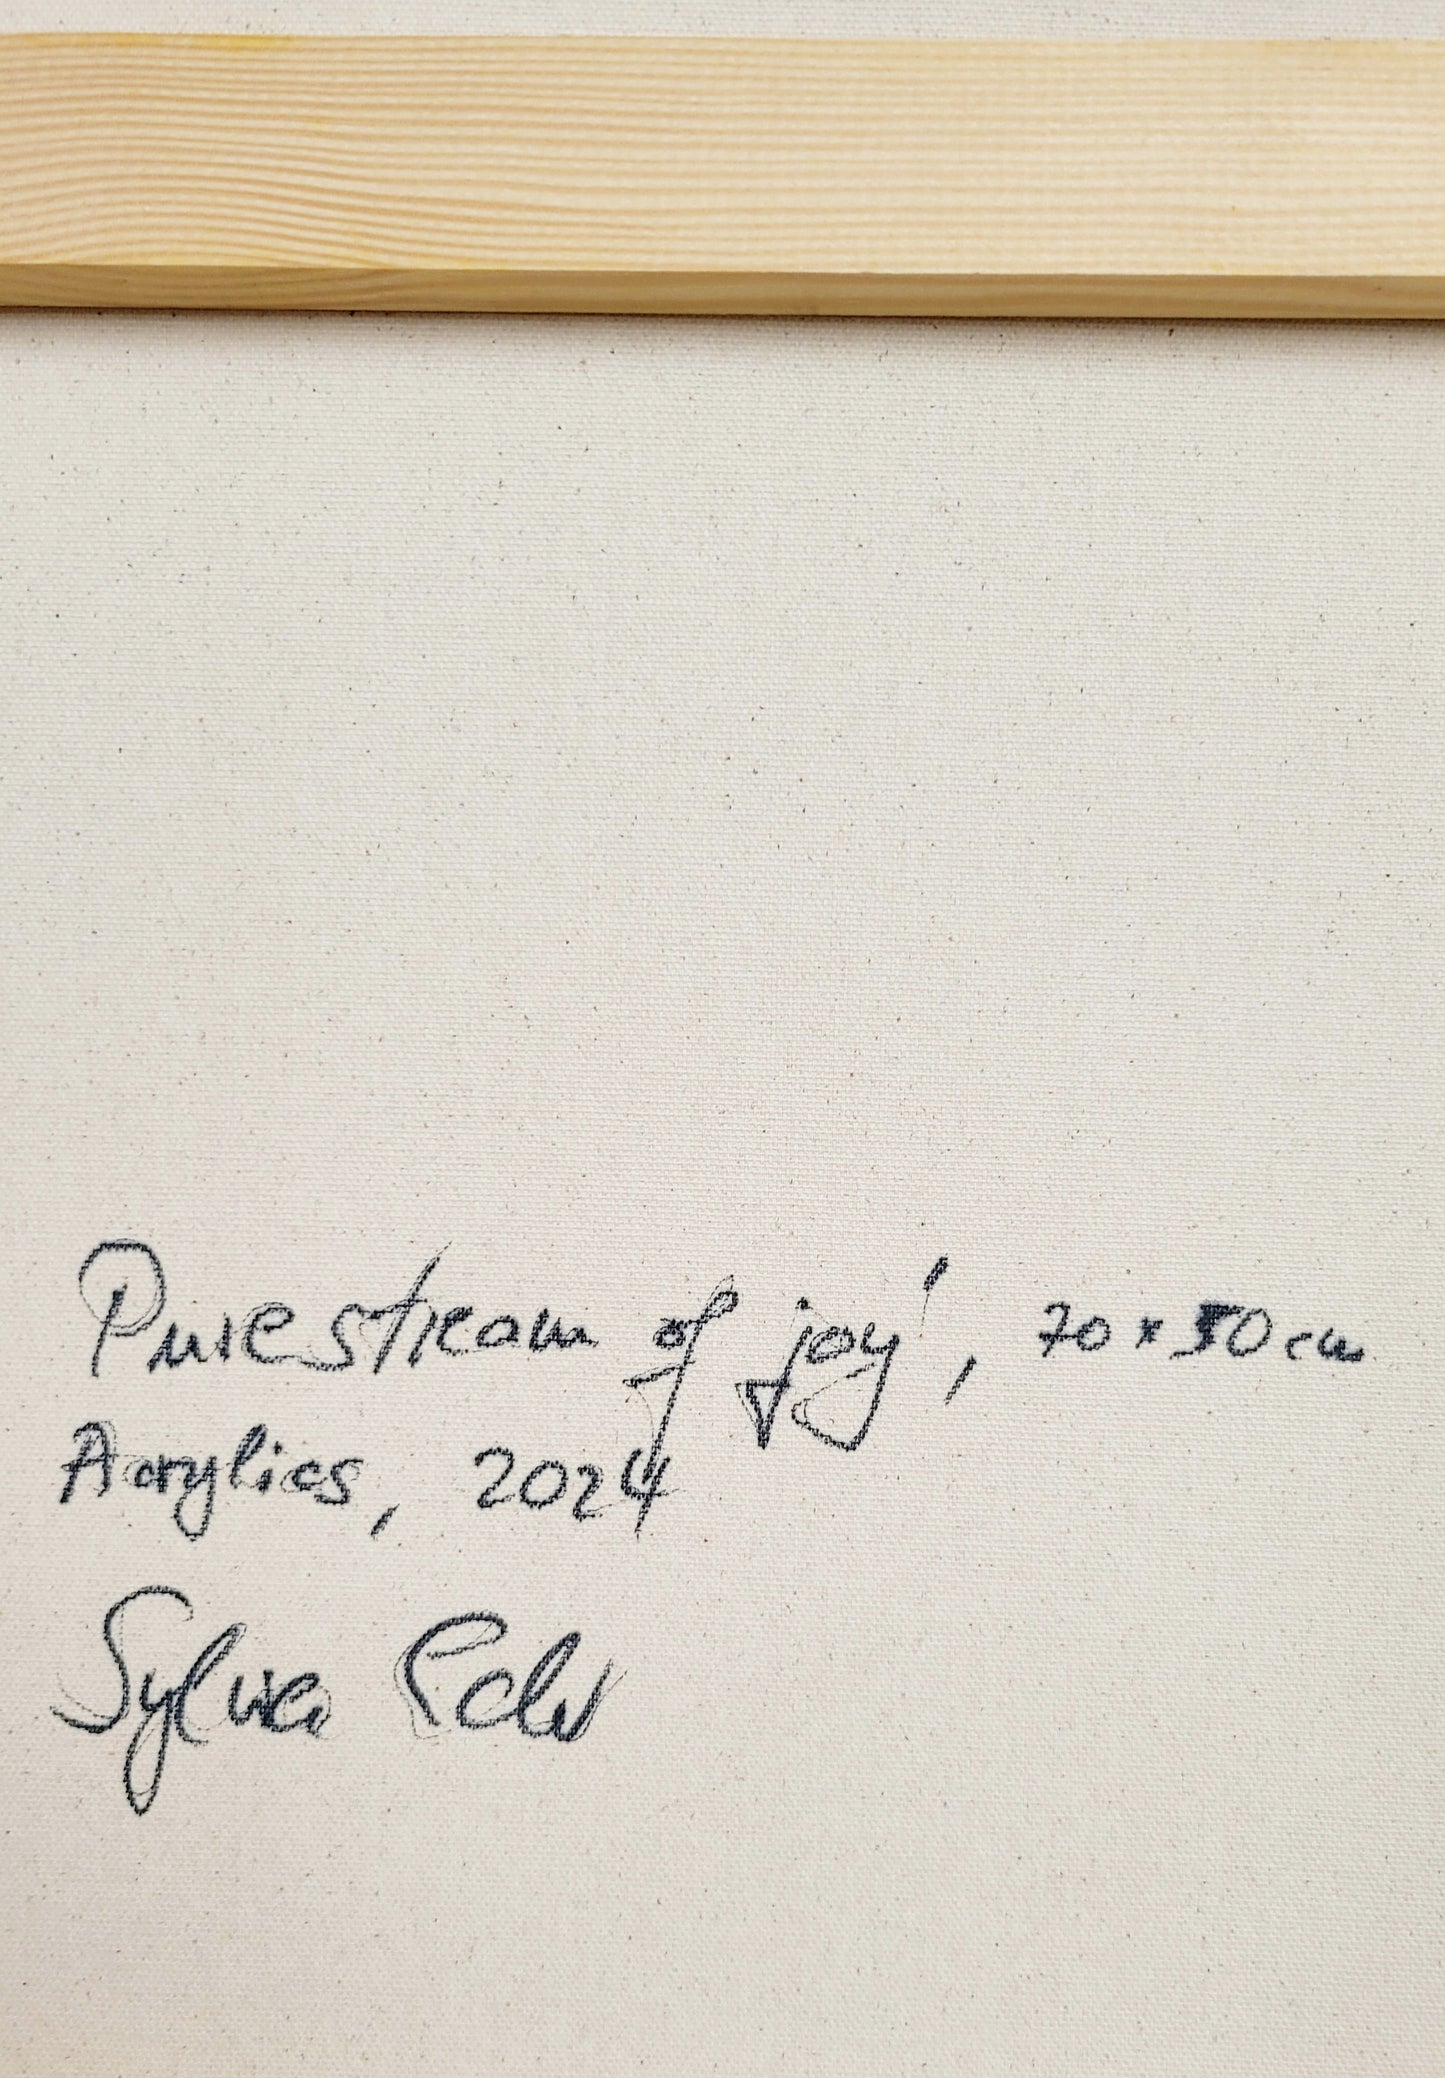 Pure stream of joy', 70 x 50 cm
Acrylics, 2024
Sylvia